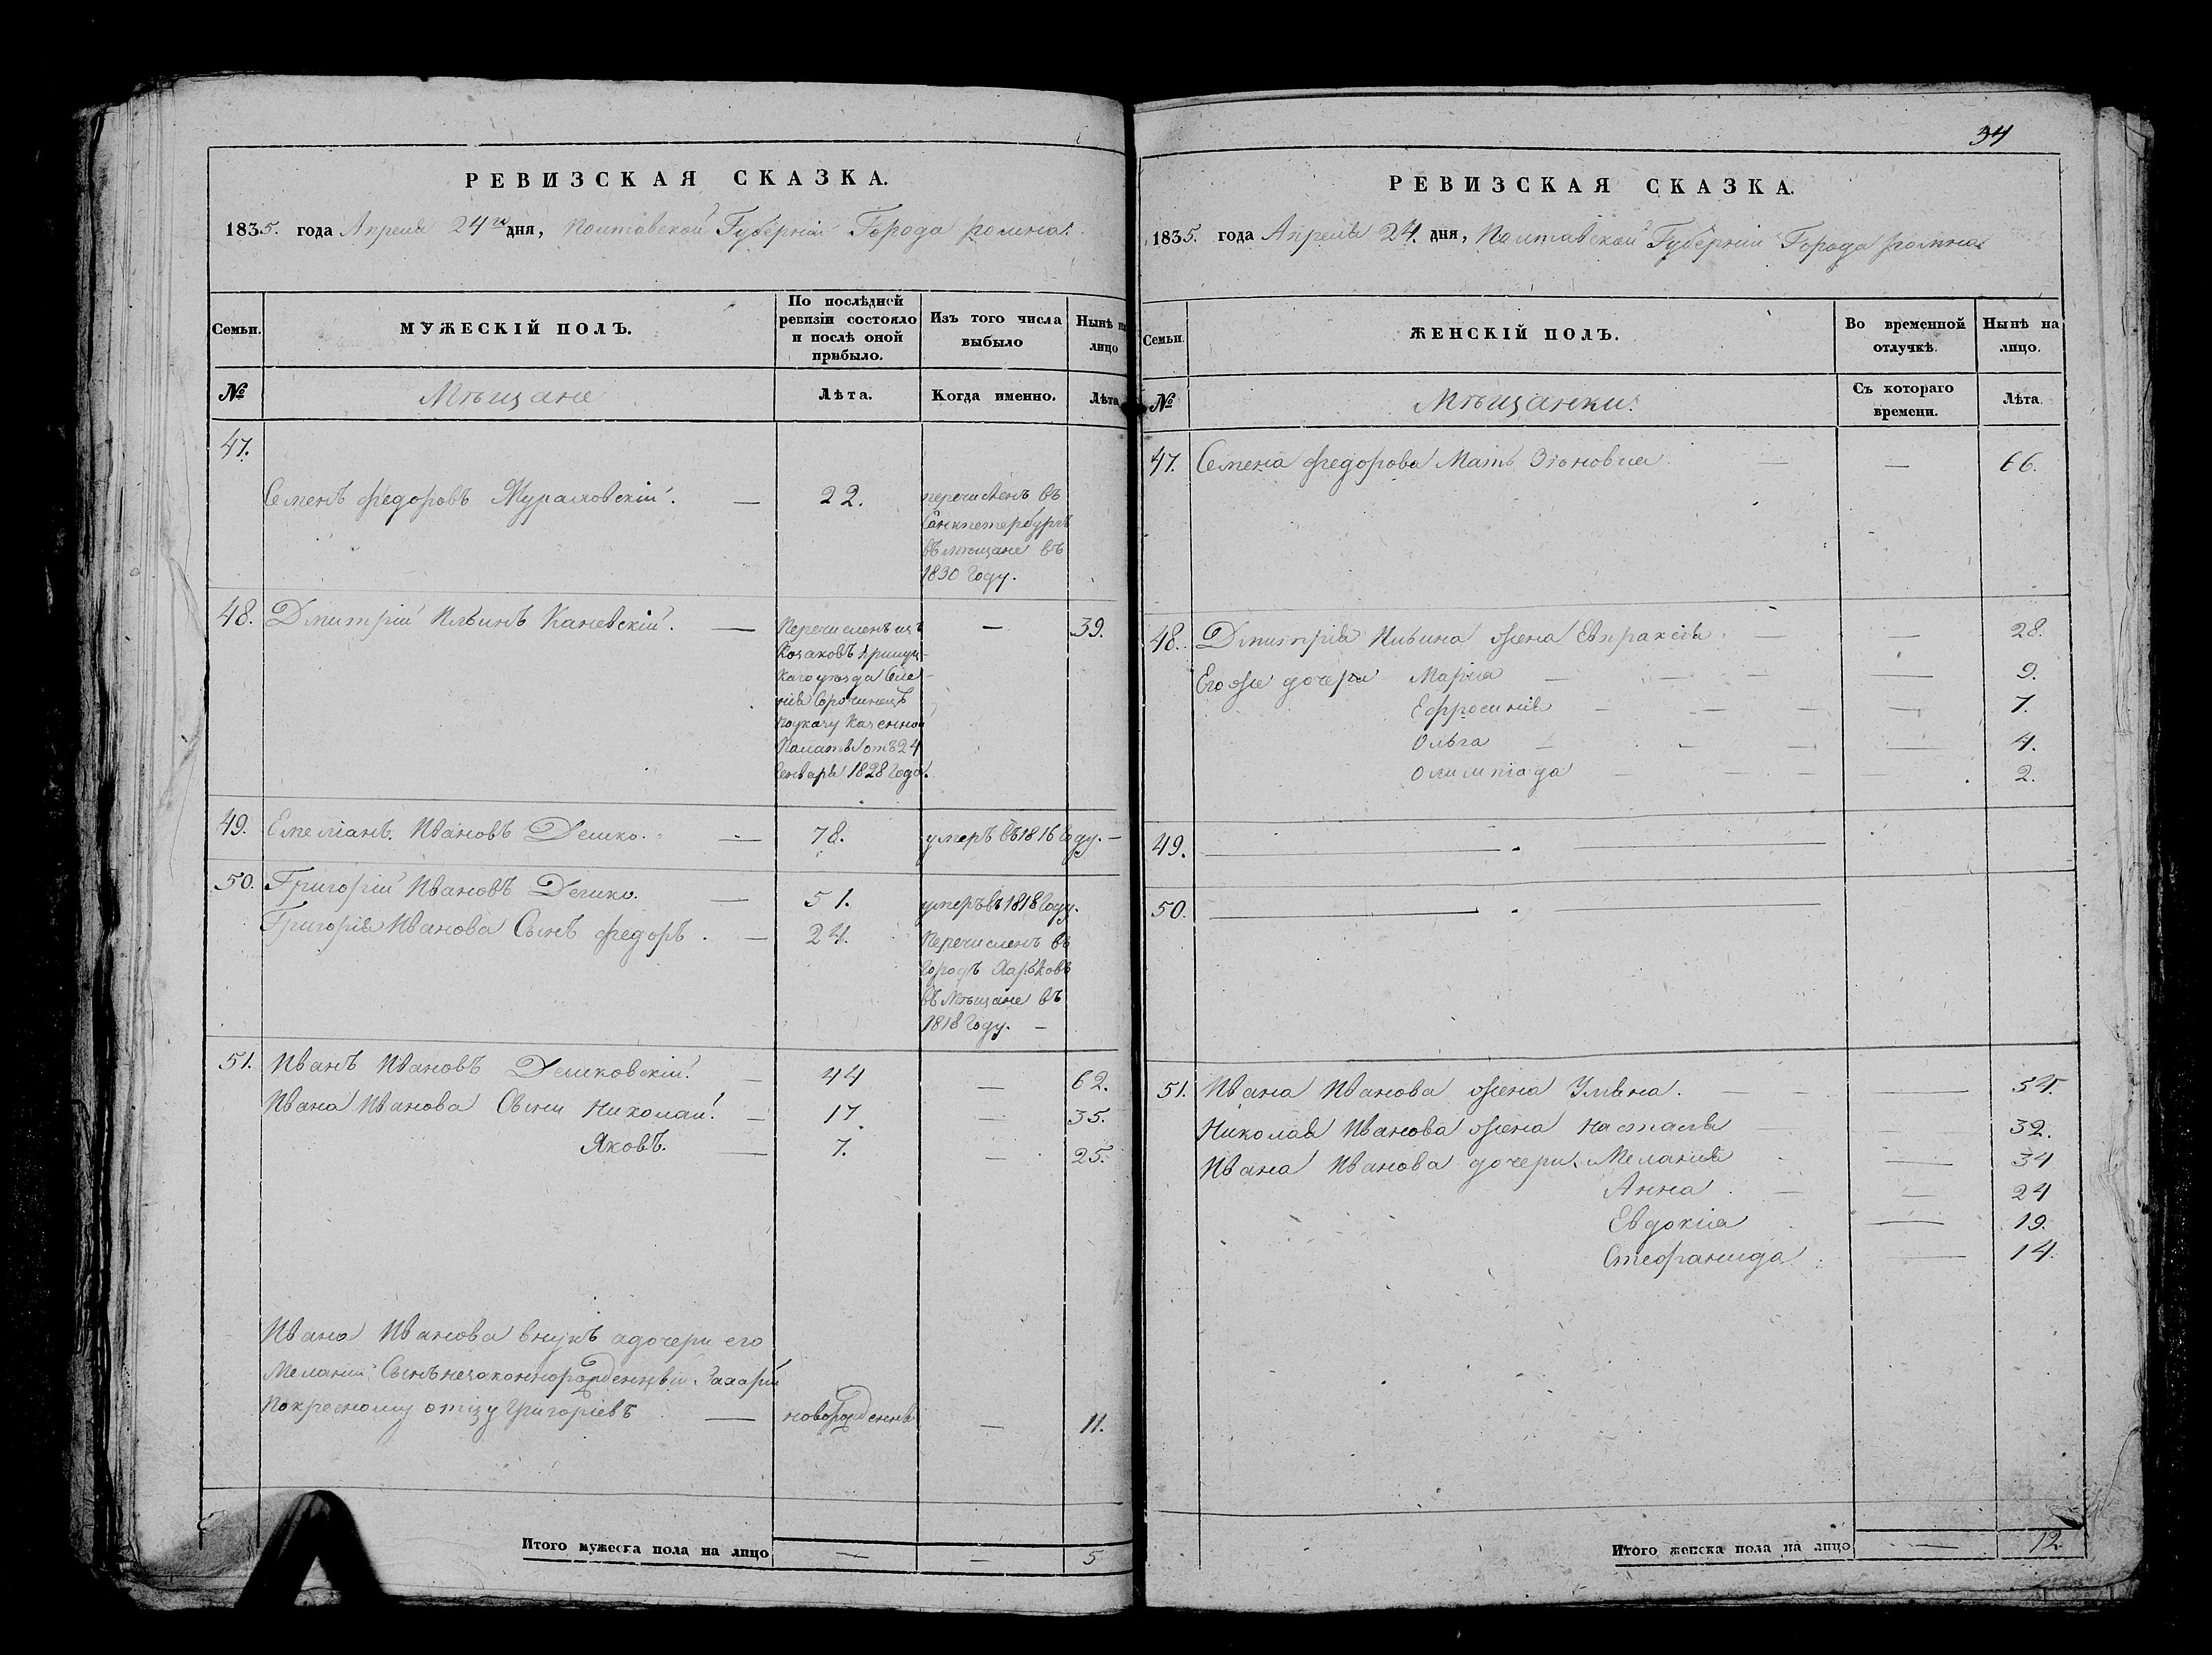 РЕВИЗСКАЯ СКАЗКА.
1835. года Апреля 24го дня, Полтавской Губерніи Города ромна.
Семьи. МУЖЕСКІЙ ПОЛЪ. По послѣдней ревизіи состояло и послѣ оной прибыло. Изъ того числа выбыло Нынѣ на лицо
№ Мѣщане Лѣта. Когда именно. Лѣта
47.
Семенъ федоровъ 22. перечисленъ въ
Санкпетербургъ
въ мѣщане въ
1830 Году.
48. Дмитрій Ильинъ Каневскій. — Перечисленъ изъ — 39.
Козаковъ
каго уѣзда Селе-
нія
поуказу Казенной
Палаты отъ 24
Генваря 1828 Года.
49. Емеліанъ Ивановъ Демко. — 78. умеръ въ 1816 Году. —
50. Григорій Ивановъ Демко. — 51. умеръ въ 1818 Году.
Григорія Иванова Сынъ федоръ. — 24. Перечисленъ въ
Городъ Харьковъ
въ Мѣщане въ
1818 Году. —
51. Иванъ Ивановъ Демковскій. — 44 — 62.
Ивана Иванова Сыны Николай. — 17. — 35.
Яковъ. — 7. — 25.
Ивана Иванова внукъ адочери его
Меланіи Сынъ незаконнорожденный Захарій
Покресному отцу Григоріевъ — новорожденный — 11.
Итого мужеска пола на лицо — — 5
34
РЕВИЗСКАЯ СКАЗКА.
1835. года Апреля 24. дня, Полтавской Губерніи Города ромна
Семьи. ЖЕНСКІЙ ПОЛЪ. Во временной отлучкѣ. Нынѣ на лицо.
№ Мѣщанки. Съ котораго времени. Лѣта.
47. Семена федорова Мать — — 66.
48. Дмитрія Ильина жена Евпраксія — 28.
Егоже дочери Марія — — — — 9.
Ефросинія — — — — 7.
Ольга — — — — 4.
Олимпіада — — — 2.
49. — —
50. — —
51. Ивана Иванова жена Уляна. — — 54.
Николая Иванова жена Настасія — — 32.
Ивана Иванова дочери. Меланія — 34
Анна — — 24
Евдокія — 19.
Стефанида — 14.
Итого женска пола на лицо — 12.